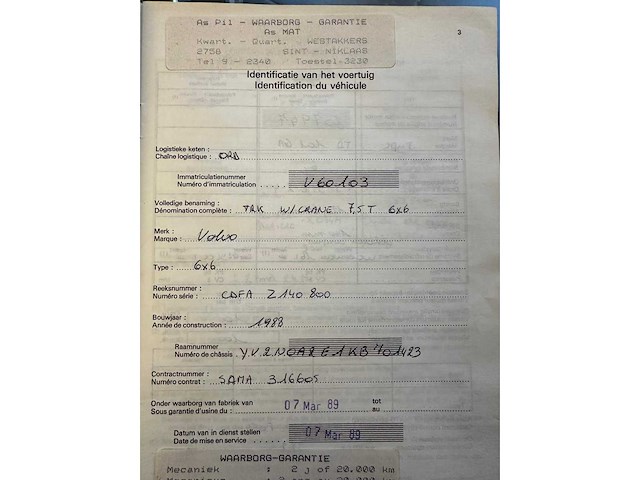 As Pil - WAARBORG - GARANTIE
As MAT
Kwart. - Quart. WESTAKKERS
2756 SINT - NIKLAAS
Tel 9 - 2340 Toestel-3230
3
Identificatie van het voertuig
Identification du véhicule
Logistieke keten :
Chaîne logistique : ORD
Immatriculatienummer
Numéro d'immatriculation ..... V60103
Volledige benaming :
Dénomination complète : TRK W/CRANE 7,5T 6x6
Merk :
Marque : Volvo
Type : 6x6
Reeksnummer :
Numéro série : CDFA Z140 800
Bouwjaar :
Année de construction : 1988
Raamnummer
Numéro de châssis . Y.V.2.N0AR2E1KB701423
Contractnummer :
Numéro contrat : SAMA 316605
Onder waarborg van fabriek van tot
Sous garantie d'usine du : 07 Mar 89 au
Datum van in dienst stellen
Date de mise en service 07 Mar 89
WAARBORG-GARANTIE
Mecaniek : 2 j of 20.000 km